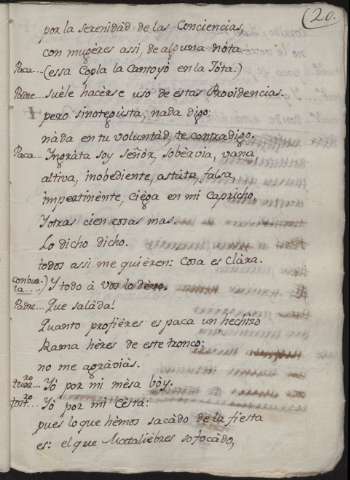 (20.
por la serenidad de las Conciencias,
con mugères assi de alguna nòta.
Paca... (essa Copla la Cantoyò en la Jòta.)
Padre... Suèle hacèrse uso de estas Providencias.
pero sinotegusta, nada digo,
nàda en tu voluntàd, te contradigo.
Paca... Ingràta soy Señòr, sobèrvia, vana
altiva, inobediente, astùta, falsa,
impertinènte, Cièga en mi Capricho,
Yotras cien cosas mas.
Lo dicho dicho.
todos assi me quièren: Cosa es Clàra.
Y todo à
Padre... Que salàda!
Quanto profières es paca un hechizo
Rama hères de este tronco:
no me agràviàs.
Yò por mi mèsa bòy.
Yò por mi Cèsta:
pues lo que hèmos sacàdo de la fiesta
es: el que Mataliebres sofocàdo,